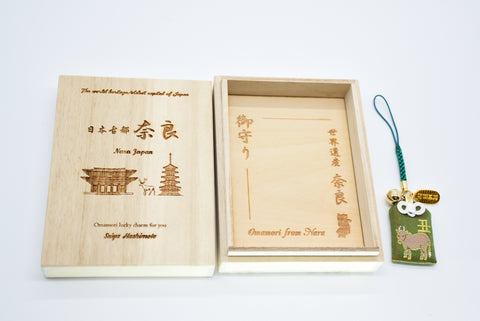 The world heritage/oldest capital of Japan
日本古都 奈良
Nara Japan
Omamori lucky charm for you
Seiya Hashimoto
世界遺産 奈良
御守り
Omamori from Nara
丑